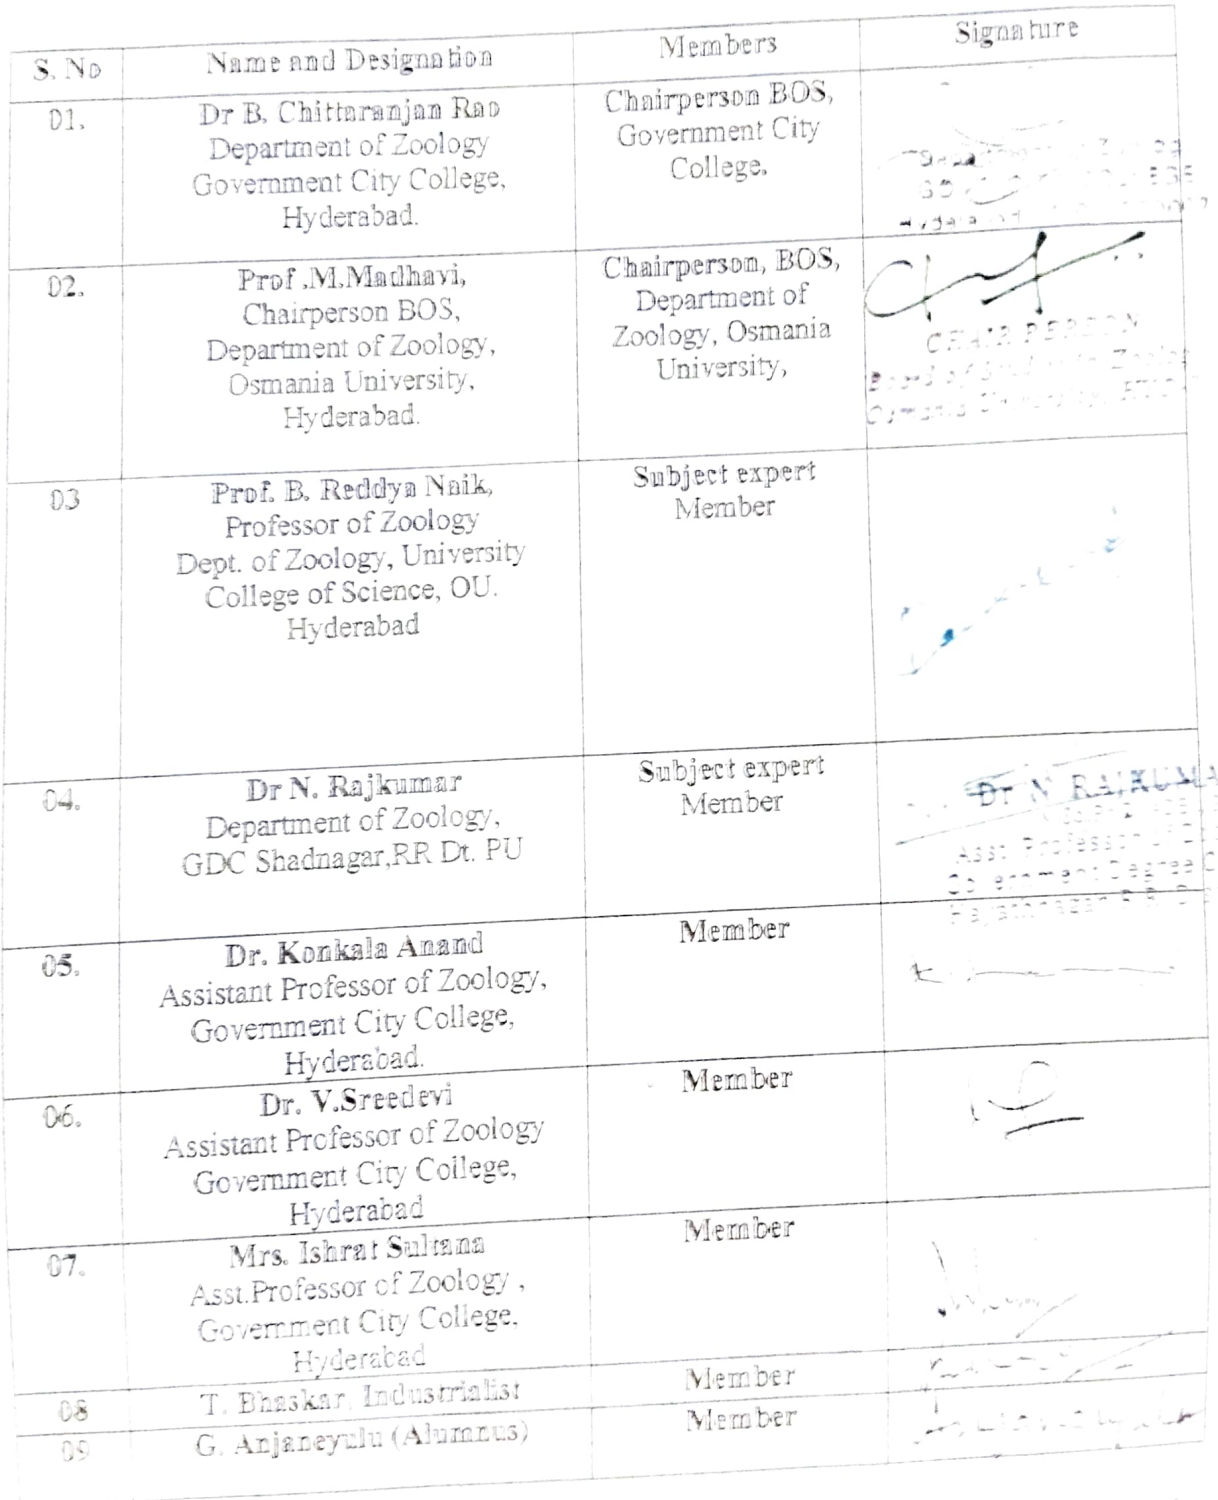 S. No
Name and Designation
Members
Signature
01.
Dr B. Chittaranjan Rao
Department of Zoology
Government City College,
Hyderabad.
Chairperson BOS,
Government City
College.
02.
Prof .M.Madhavi,
Chairperson BOS,
Department of Zoology,
Osmania University,
Hyderabad.
Chairperson, BOS,
Department of
Zoology, Osmania
University,
CHAIR PERSON
Board of Studies in Zoology
Osmania University,
03
Prof. B. Reddya Naik,
Professor of Zoology
Dept. of Zoology, University
College of Science, OU.
Hyderabad
Subject expert
Member
04.
Dr N. Rajkumar
Department of Zoology,
GDC Shadnagar,RR Dt. PU
Subject expert
Member
Dr N RAJKUMA
Asst Professor of
Government Degree C
05.
Dr. Konkala Anand
Assistant Professor of Zoology,
Government City College,
Hyderabad.
Member
06.
Dr. V.Sreedevi
Assistant Professor of Zoology
Government City College,
Hyderabad
Member
07.
Mrs. Ishrat Sultana
Asst.Professor of Zoology ,
Government City College,
Hyderabad
Member
08
T. Bhaskar, Industrialist
Member
09
G. Anjaneyulu (Alumnus)
Member